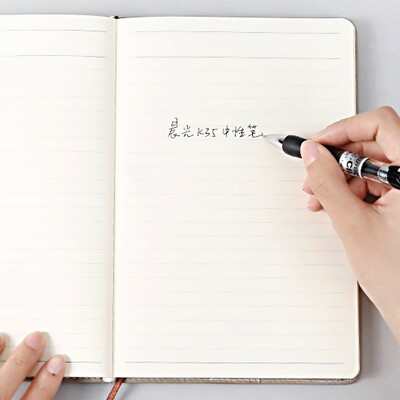 晨光K35中性笔